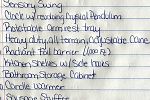 Sensory Swing
Clock w/ reading Crystal Pendulum
Protectable arm rest tray
Heavy duty, all terrain, adjustable Cane
Radiant Foil barrier (1,000 ft)
Kitchen Shelves w/ Side hooks
Bathroom Storage Cabinet
Candle Warmer
Sausage Stuffer